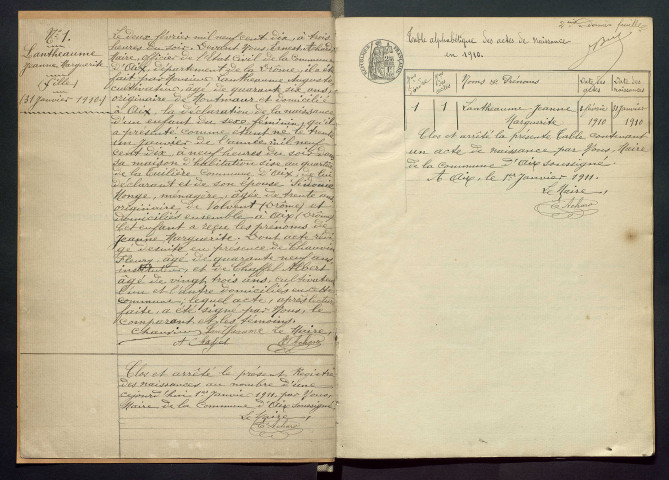 N° 1.
Lantheaume
Jeanne Marguerite
Fille
(31 Janvier 1910)
Le deux février mil neuf cent dix à trois
heures du soir. Devant Nous Ernest
Maire, officier de l'état Civil de la commune
d'Aix, département de la Drôme, il a été
fait par Monsieur Lantheaume Auguste
cultivateur, âgé de quarante six ans,
originaire de Montmaur et domicilié
à Aix la déclaration de la naissance
d'un enfant du sexe féminin, qu'il
a présenté comme étant né le trente
un janvier de l'année mil neuf
cent dix à neuf heures du soir dans
sa maison d'habitation sise au quartier
de la Tuilière Commune d'Aix, de lui
déclarant et de son épouse
Monge, ménagère, âgée de trente ans
originaire de Volvent (Drôme) et
domiciliés ensemble à Aix (Drôme)
Cet enfant a reçu les prénoms de
Jeanne Marguerite. Dont acte rédi-
gé de suite en présence de Chauvin
Fleury, âgé de quarante neuf ans
instituteur, et de Albert
âgé de vingt trois ans, cultivateur
l'un et l'autre domiciliés en cette
commune; lequel acte, après lecture
faite, a été signé par Nous, le
comparant et les témoins.
Chauvin Lantheaume Le Maire,
Clos et arrêté le présent Registre
des naissances au nombre d'une
cejourd'hui 1er Janvier 1911 par Nous
Maire de la Commune d'Aix soussigné
Le Maire,
2me et dernier feuillet
Table alphabétique des actes de naissance
en 1910.
Noms & Prénoms
Date des actes
Date des naissances
1 1 Lantheaume Jeanne 2 février 31 Janvier
Marguerite 1910 1910
Clos et arrêté la présente Table contenant
un acte de naissance par Nous, Maire
de la Commune d'Aix soussigné
A Aix, le 1er Janvier 1911.
Le Maire,